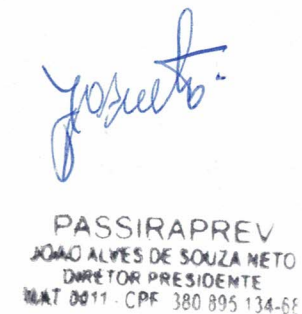 PASSIRAPREV
JOAO ALVES DE SOUZA NETO
DIRETOR PRESIDENTE
MAT 0011 - CPF 380 895 134-68